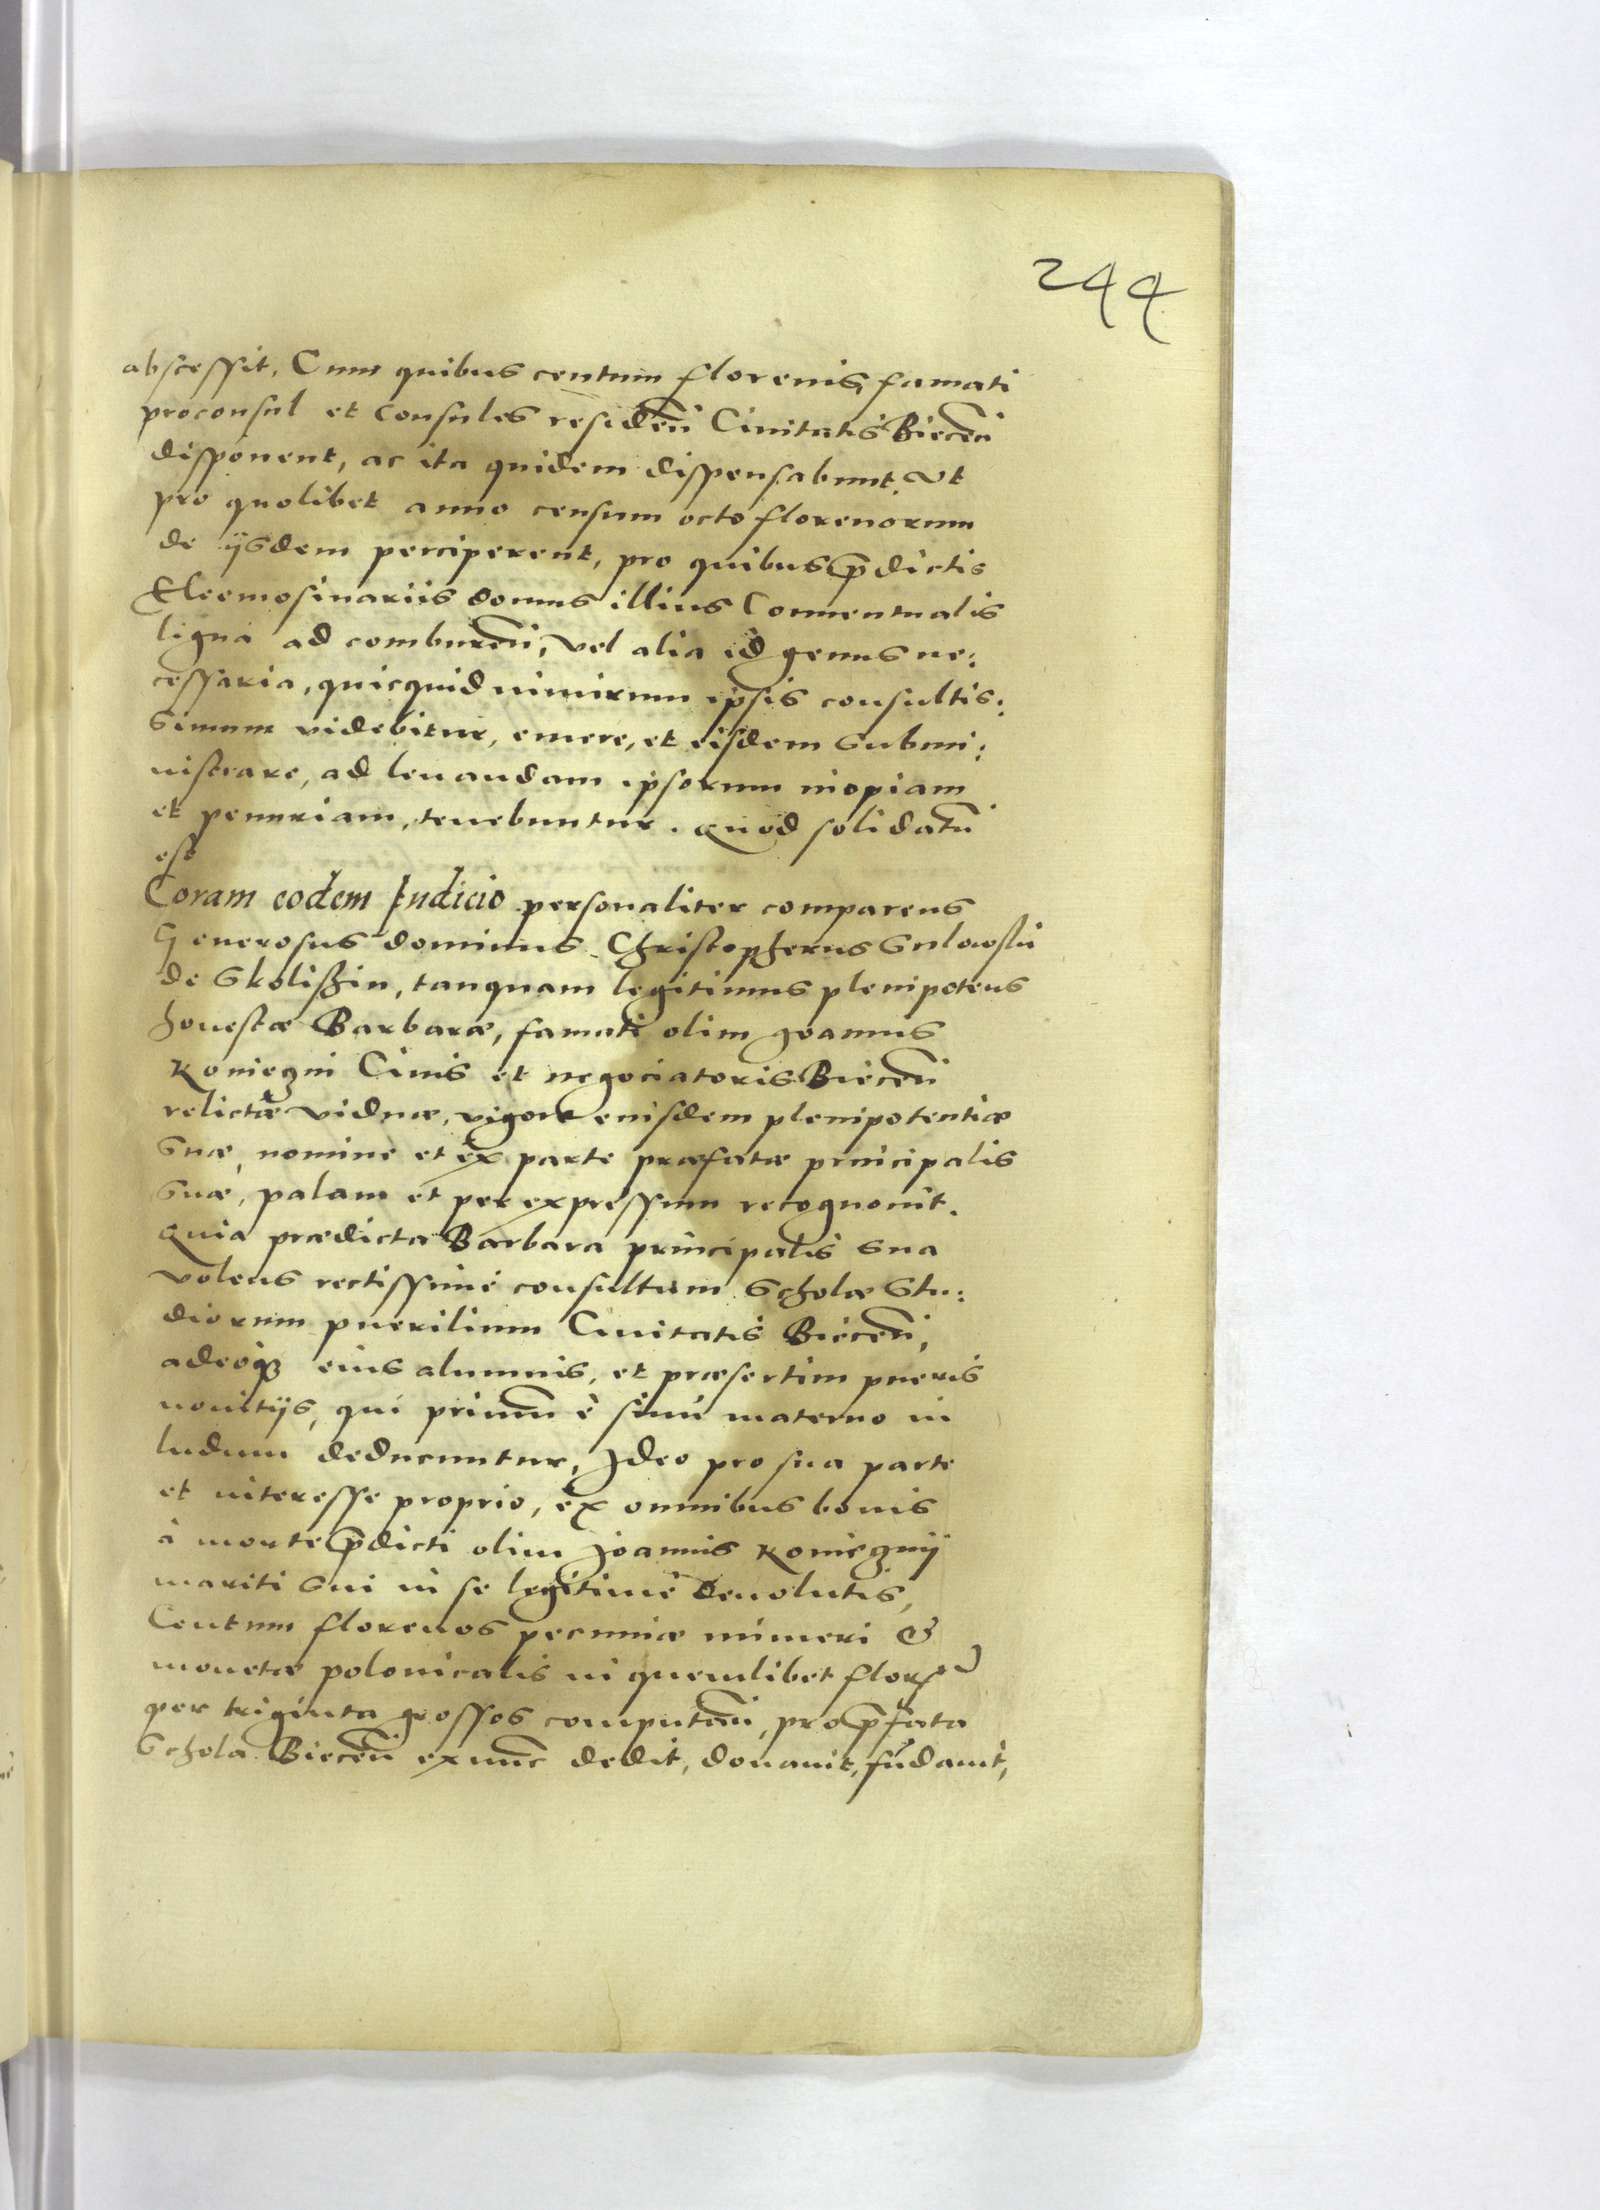 244
abscessit, Cum quibus centum florenis, famati
proconsul et Consules residen̄ Ciuitatis Biecen̄
disponent, ac ita quidem dispensabunt, vt
pro quolibet anno censum octo florenorum
de ijsdem perciperent, pro quibus p̄dictis
Eleemosinariis domus illius Conuentualis
ligna ad comburen̄, vel alia id genus ne:
cessaria, quicquid nimirum ipsis consultis:
simum videbitur, emere, et eisdem submi:
nistrare, ad leuandam ipsorum inopiam
et penuriam, tenebuntur. Quod solidatū
est
Coram eodem Iudicio personaliter comparens
Generosus dominus Christopherus
de Skolißin, tanquam legitimus plenipotens
honestæ Barbaræ, famati olim Joannis
Koniegni Ciuis et negociatoris Biecen̄
relictæ viduæ, vigore eiusdem plenipotentiæ
suæ, nomine et ex parte præfatæ principalis
suæ, palam et per expressum recognouit.
Quia prædicta Barbara principalis sua
volens rectissimè consultum Scholæ Stu:
diorum puerilium Ciuitatis Biecen̄,
adeoq3 eius alumnis, et præsertim pueris
nouitijs, qui primum è sinu materno in
ludum deducuntur, Ideo pro sua parte
et interesse proprio, ex omnibus bonis
à morte p̄dicti olim Joannis Koniegnij
mariti sui in se legitimè deuolutis,
Centum florenos pecuniæ numeri &
monetæ polonicalis in quemlibet flor
per triginta grossos computan̄, pro p̄fata
Schola Biecen̄ ex nūc dedit, donauit, fūdauit,